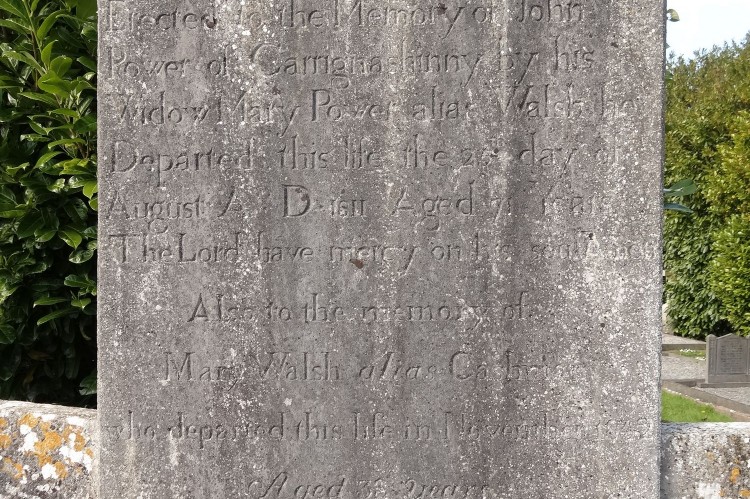 Erected to the Memory of John
Power of Carrignashinny by his
Widow Mary Power alias Walsh he
Departed this life the day of
August A D 1811 Aged 71 years
The Lord have mercy on his soul Amen
Also to the memory of
Mary Walsh alias
who departed this life in November
Aged years